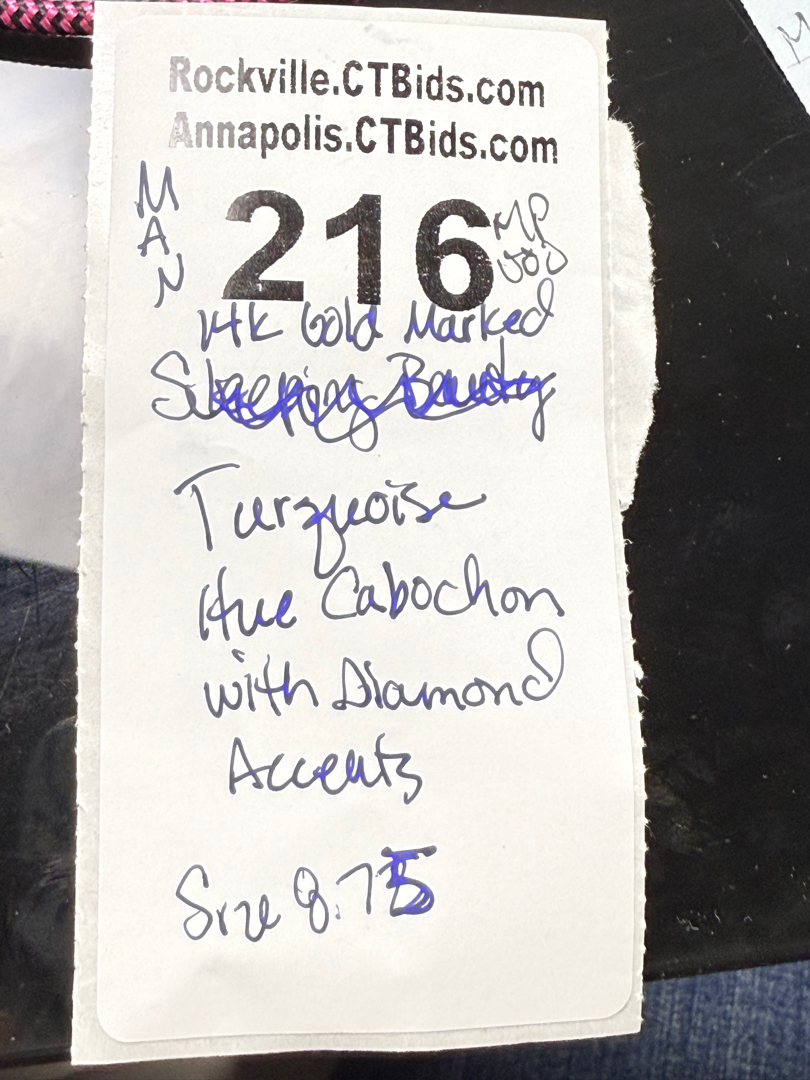 Rockville.CTBids.com
Annapolis.CTBids.com
MAN
216
14k Gold Marked
Sleeping Beauty
Turquoise
Hue Cabochon
with Diamond
Accents
Size 8.75